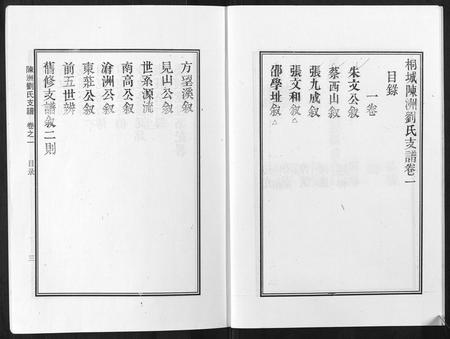 桐城陳洲劉氏支譜卷一
目錄
一卷
朱文公敘
蔡西山敘
張九成敘
張文和敘△
邵學址敘△
方望溪敘
見山公敘
世系源流
南高公敘
滄洲公敘
東莊公敘
前五世辨
舊修支譜敘二則
陳洲劉氏支譜 卷之一 目录 三